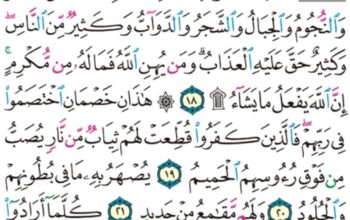 وَٱلنُّجُومُ وَٱلْجِبَالُ وَٱلشَّجَرُ وَٱلدَّوَآبُّ وَكَثِيرٌ مِّنَ ٱلنَّاسِ ۖ
وَكَثِيرٌ حَقَّ عَلَيْهِ ٱلْعَذَابُ ۗ وَمَن يُهِنِ ٱللَّهُ فَمَا لَهُۥ مِن مُّكْرِمٍ ۚ
إِنَّ ٱللَّهَ يَفْعَلُ مَا يَشَآءُ ۩ ١٨ ۞ هَـٰذَانِ خَصْمَانِ ٱخْتَصَمُوا۟
فِى رَبِّهِمْ ۖ فَٱلَّذِينَ كَفَرُوا۟ قُطِّعَتْ لَهُمْ ثِيَابٌ مِّن نَّارٍ يُصَبُّ
مِن فَوْقِ رُءُوسِهِمُ ٱلْحَمِيمُ ١٩ يُصْهَرُ بِهِۦ مَا فِى بُطُونِهِمْ
وَٱلْجُلُودُ ٢٠ وَلَهُم مَّقَـٰمِعُ مِنْ حَدِيدٍ ٢١ كُلَّمَآ أَرَادُوٓا۟